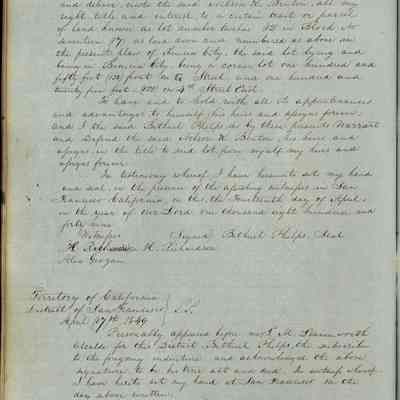 and deliver unto the said Nelson W. Benton, all my
right title and interest, to a certain tract or parcel
of land known as lot number twelve 12 in Block No
seventeen 17 as laid down and numbered as above on
the present plan of Benicia City, the said lot lying and
being in Benicia City, being a corner lot one hundred and
fifty feet 150 front on G Street, and one hundred and
twenty five feet 125 on 4th Street East
To have and to hold with all its appurtenances
and advantages to himself, his heirs and assigns forever
and I the said Bethuel Phelps, do by these presents Warrant
and Defend the said Nelson W. Benton, his heirs and
assigns, in the title to said lot, from myself my heirs and
assigns forever
In testimony whereof I have hereunto set my hand
and seal, in the presence of the attesting witnesses in San
Francisco California, on this, the fourteenth day of April,
in the year of our Lord one thousand eight hundred and
forty nine
Witnesses Signed Bethuel Phelps, Seal
H. Richardson
Alex Grogan
Territory of California
District of San Francisco S.S.
April 17th 1849
Personally appeared before me T. M. Leavenworth
Alcalde for this District Bethuel Phelps, the subscriber
to the foregoing indenture and acknowledged the above
signature to be his true act and deed. In witness whereof
I have hereto set my hand at San Francisco on the
day above written